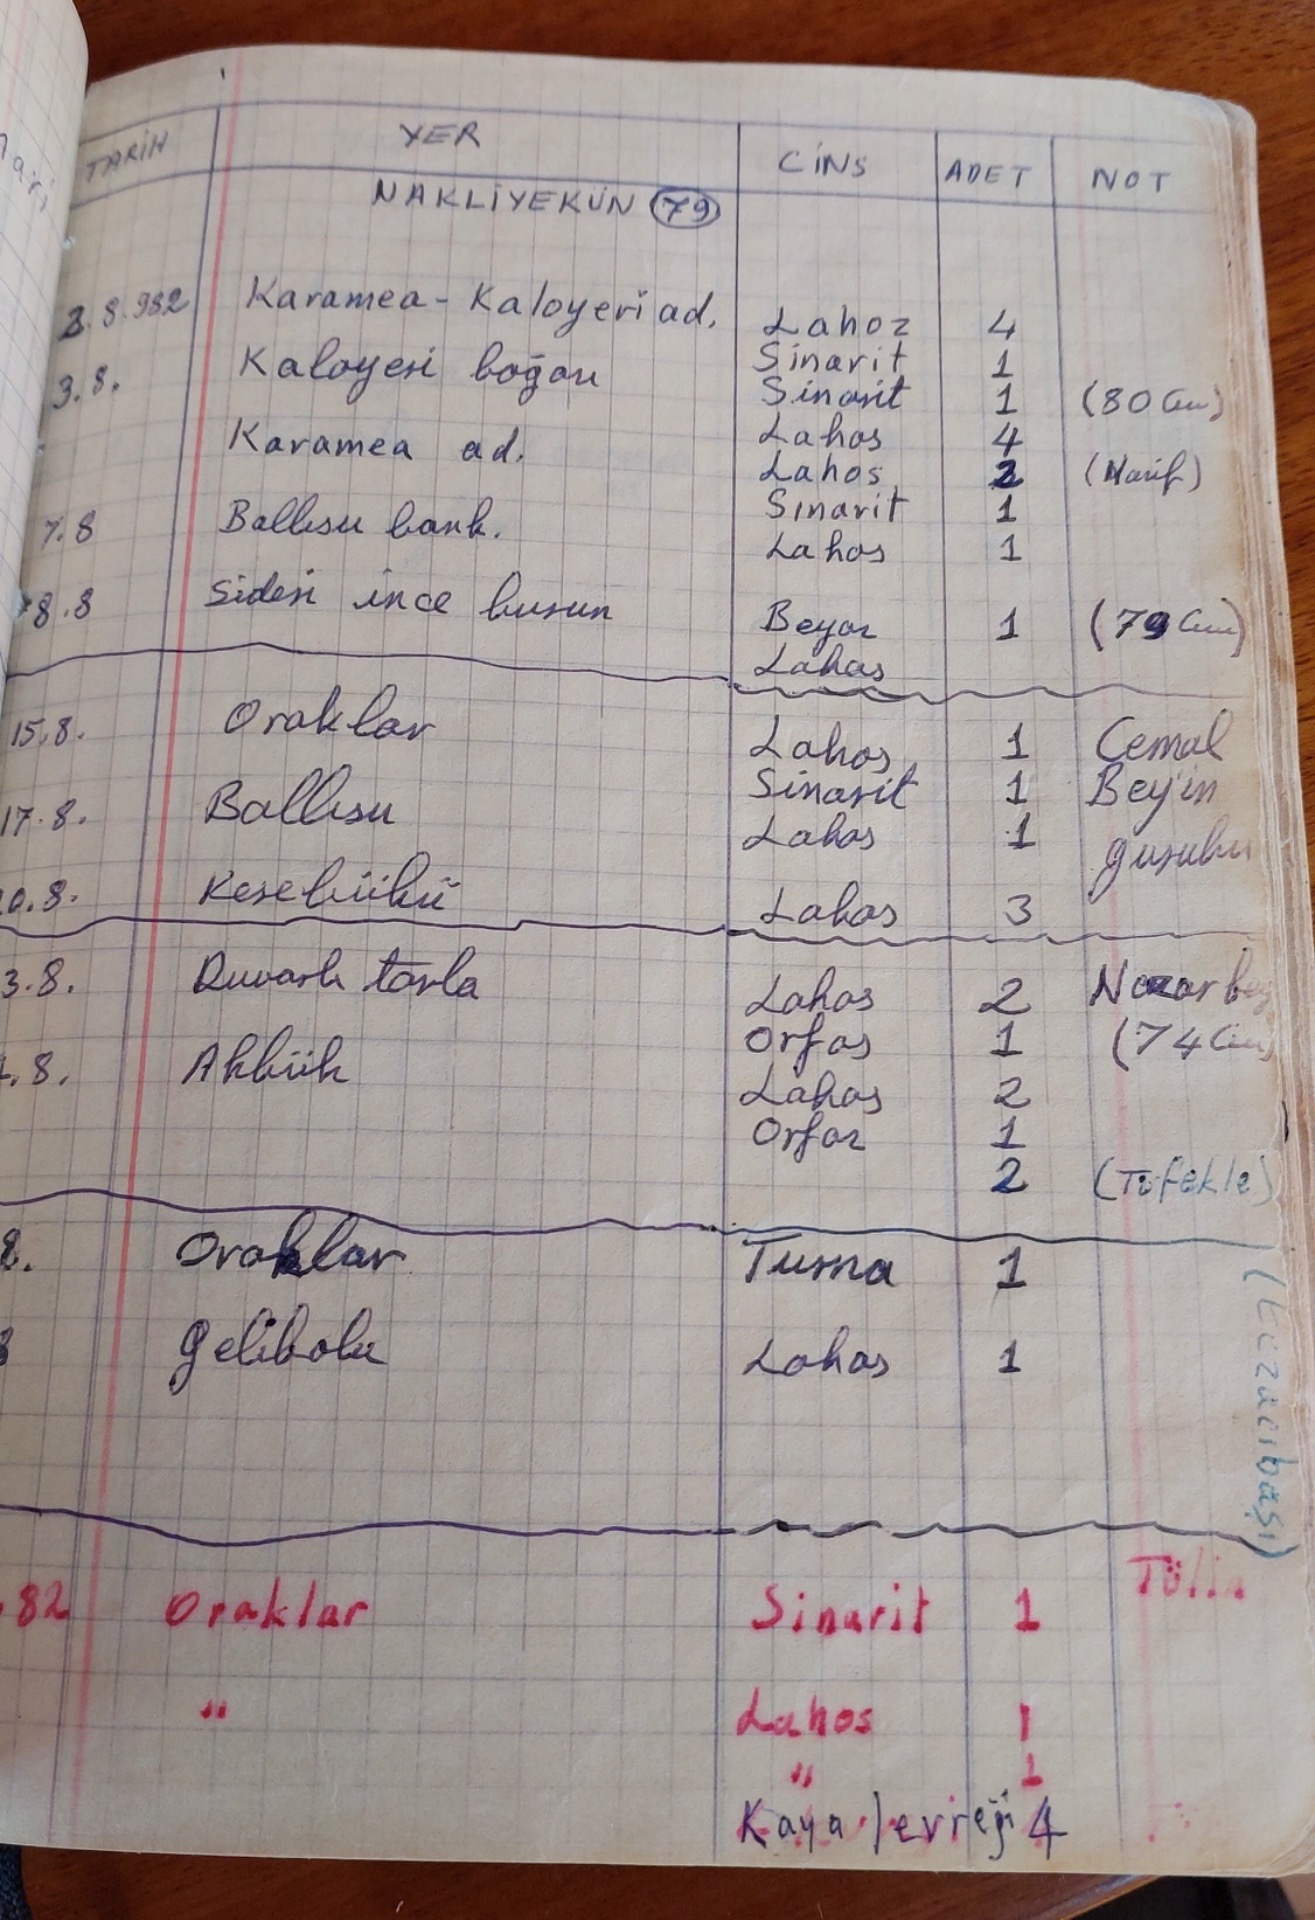 TARİH YER CİNS ADET NOT
NAKLİYEKÜN 79
3.8.982 Karamea - Kaloyeri ad. Lahoz 4
Sinarit 1
3.8. Kaloyeri boğazı Sinarit 1 (80 Cm)
Lahos 4
Karamea ad. Lahos 2 (Narif)
Sınarit 1
7.8 Ballısu bank. Lahos 1
8.8 Sideri ince burun Beyaz 1 (79 Cm)
Lahos
15.8. Oraklar Lahos 1 Cemal
Sinarit 1 Bey'in
17.8. Ballısu Lahos 1 gurubu
0.8. Kesebükü Lahos 3
3.8. Duvarlı tarla Lahos 2 Nazar bey
Orfos 1 (74 Cm)
.8. Akbük Lahos 2
Orfoz 1
2 (Tüfekle)
8. Oraklar Turna 1
8 Gelibolu Lahos 1
(Eczacıbaşı)
.82 Oraklar Sinarit 1
" Lahos 1
" 1
Kaya levreği 4